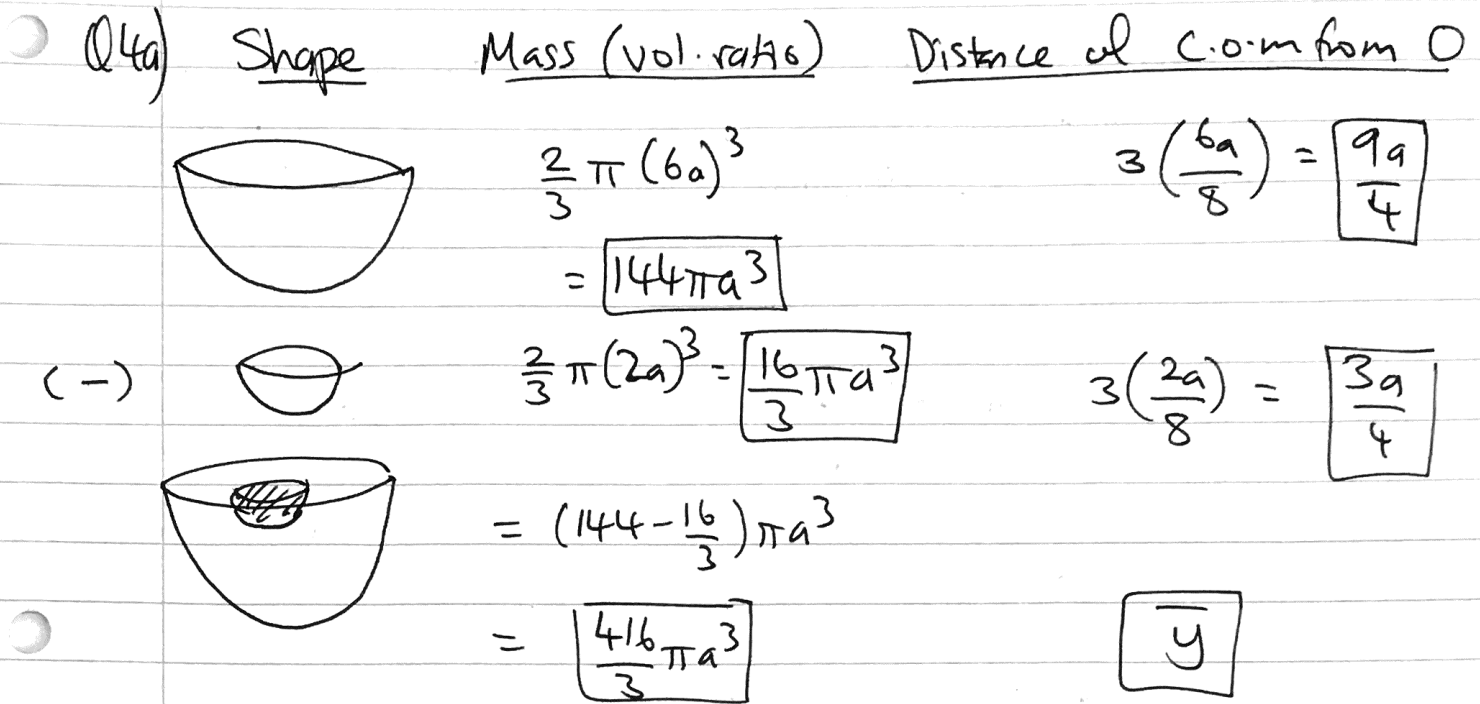 Q4a) Shape Mass (vol. ratio) Distance of c.o.m from O
2/3 π (6a)^3 3(6a/8) = 9a/4
= 144πa^3
(-) 2/3 π(2a)^3 = 16/3 πa^3 3(2a/8) = 3a/4
= (144 - 16/3)πa^3
= 416/3 πa^3 ȳ